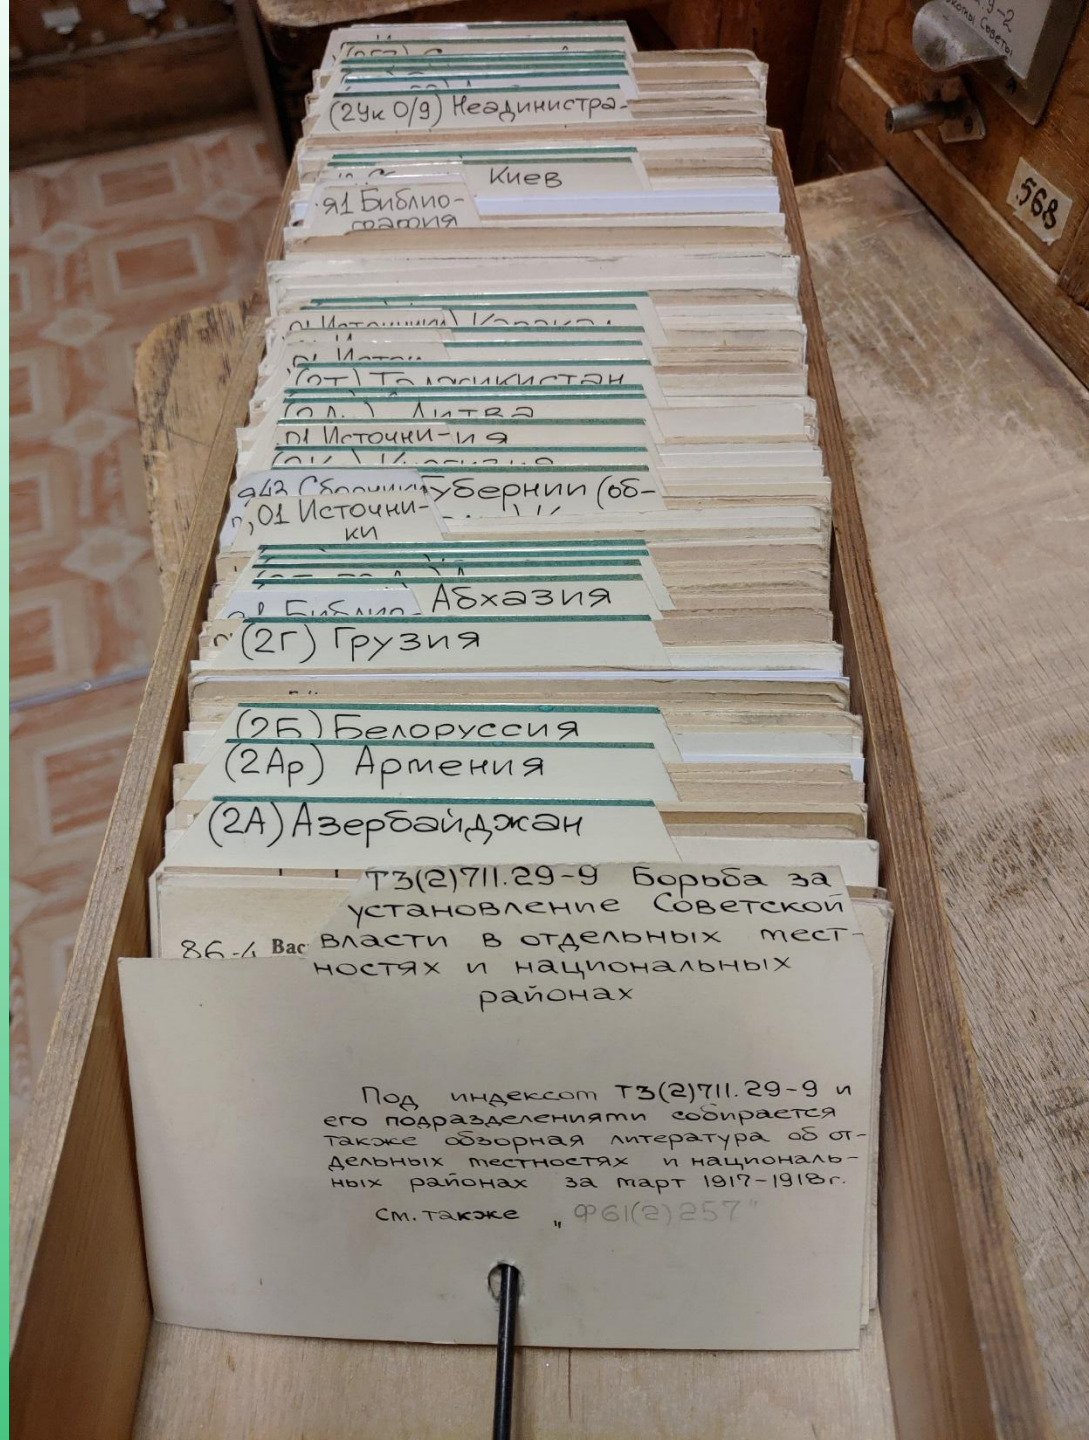 (2Ук 0/9) Неадинистра-
Киев
я1 Библио-
графия
568
01 Источники) Каракал
01 Источ
(2Т) Таджикистан
Литва
01 Источни-ия
Киргизия
я43 Сборники Губернии (об-
,01 Источни-
ки
Абхазия
я1 Библио-
(2Г) Грузия
(2Б) Белоруссия
(2Ар) Армения
(2А) Азербайджан
Т3(2)711.29-9 Борьба за
установление Советской
власти в отдельных мест-
ностях и национальных
районах
86-4 Вас
Под индексом Т3(2)711.29-9 и
его подразделениями собирается
также обзорная литература об от-
дельных местностях и националь-
ных районах за март 1917-1918г.
См. также „Ф61(2)257"